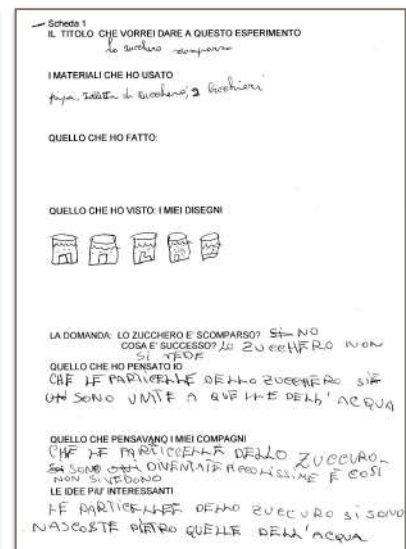 Scheda 1
IL TITOLO CHE VORREI DARE A QUESTO ESPERIMENTO
lo zucchero scomparso
I MATERIALI CHE HO USATO
zolletta di zucchero, 2 bicchieri
QUELLO CHE HO FATTO:
QUELLO CHE HO VISTO: I MIEI DISEGNI
LA DOMANDA: LO ZUCCHERO E' SCOMPARSO? SI NO
COSA E' SUCCESSO? LO ZUCCHERO NON
SI VEDE
QUELLO CHE HO PENSATO IO
CHE LE PARTICELLE DELLO ZUCCHERO SI
SONO UNITE A QUELLE DELL'ACQUA
QUELLO CHE PENSAVANO I MIEI COMPAGNI
CHE LE PARTICELLE DELLO ZUCCURO
SONO DIVENTATE PICCOLISSIME E COSÌ
NON SI VEDONO
LE IDEE PIU' INTERESSANTI
LE PARTICELLE DELLO ZUCCURO SI SONO
NASCOSTE DIETRO QUELLE DELL'ACQUA